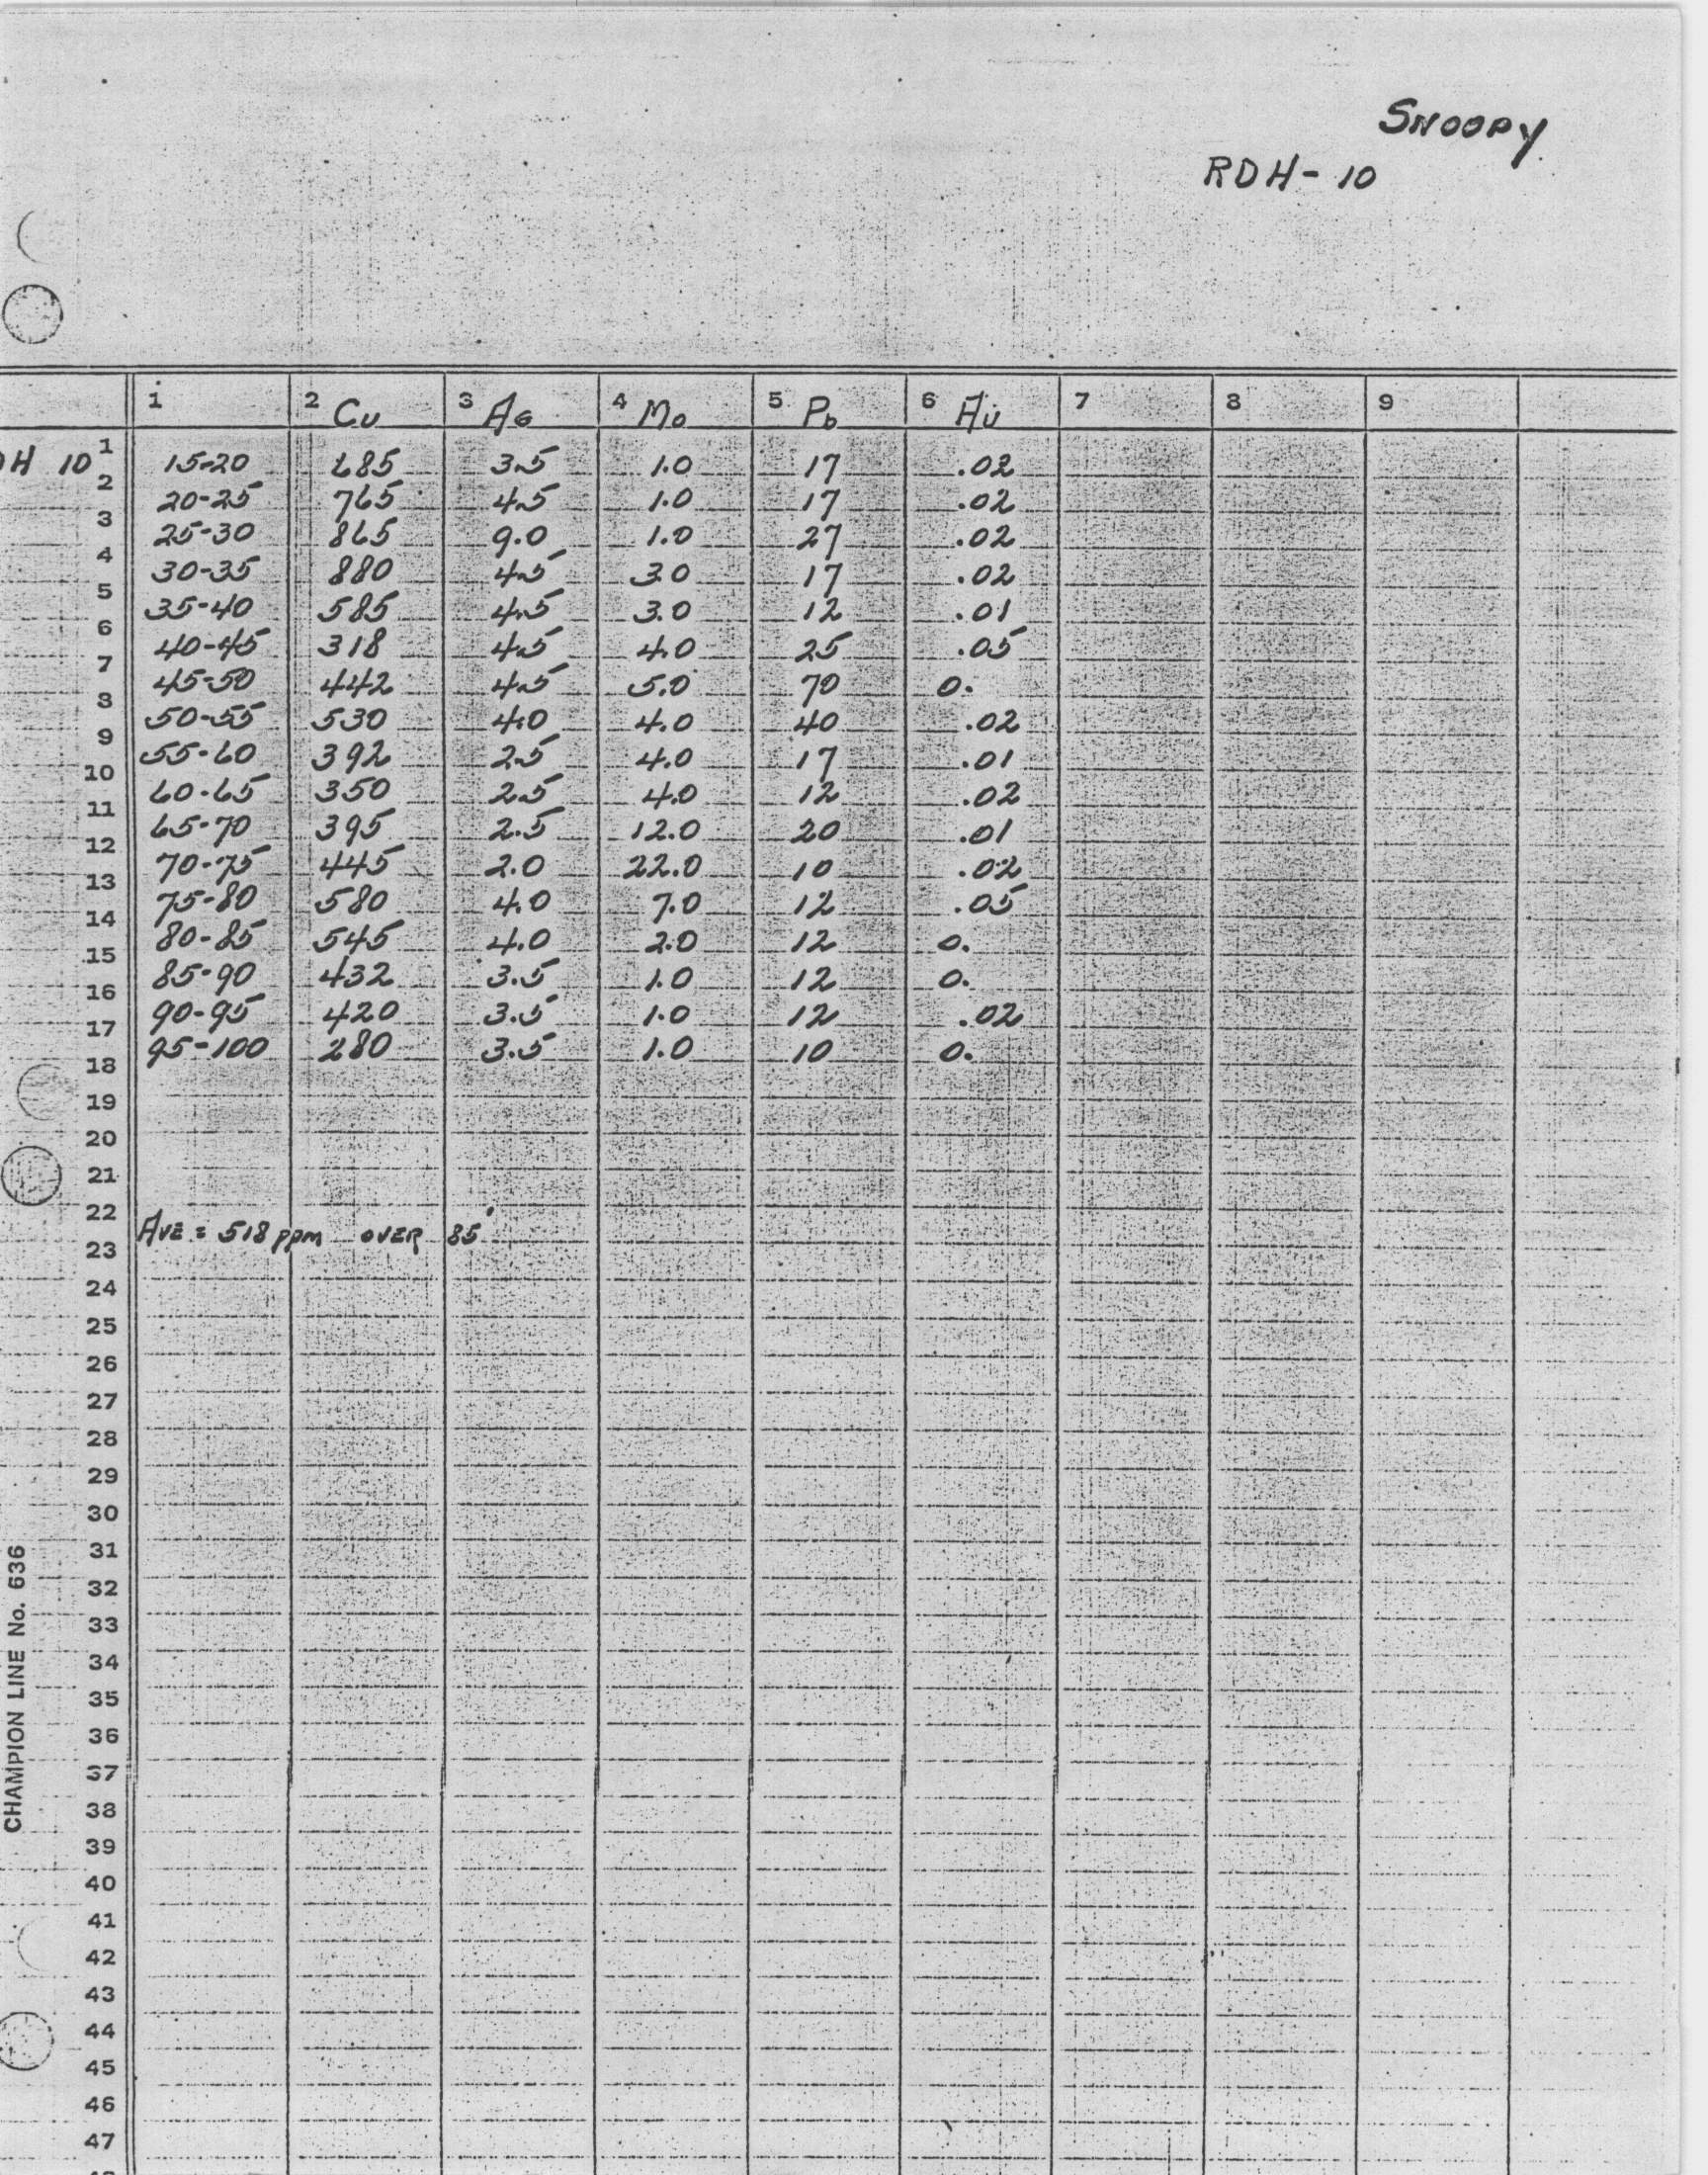 SNOOPY
RDH-10
1 2 Cu 3 AG 4 Mo 5 Pb 6 Au 7 8 9
DH 10 1 15-20 685 3.5 1.0 17 .02
2 20-25 765 4.5 1.0 17 .02
3 25-30 865 9.0 1.0 27 .02
4 30-35 880 4.5 3.0 17 .02
5 35-40 585 4.5 3.0 12 .01
6 40-45 318 4.5 4.0 25 .05
7 45-50 442 4.5 5.0 70 0.
8 50-55 530 4.0 4.0 40 .02
9 55-60 392 2.5 4.0 17 .01
10 60-65 350 2.5 4.0 12 .02
11 65-70 395 2.5 12.0 20 .01
12 70-75 445 2.0 22.0 10 .02
13 75-80 580 4.0 7.0 12 .05
14 80-85 545 4.0 2.0 12 0.
15 85-90 432 3.5 1.0 12 0.
16 90-95 420 3.5 1.0 12 .02
17 95-100 280 3.5 1.0 10 0.
18
19
20
21
22
AVE = 518 ppm OVER 85'
23
24
25
26
27
28
29
30
31
32
33
34
35
36
37
38
39
40
41
42
43
44
45
46
47
CHAMPION LINE No. 636